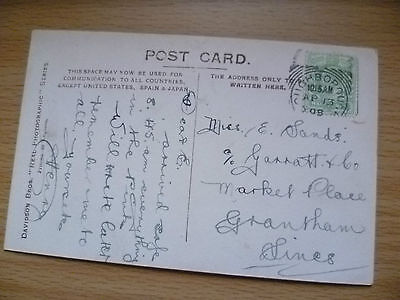 POST CARD.
THIS SPACE MAY NOW BE USED FOR
COMMUNICATION TO ALL COUNTRIES,
EXCEPT UNITED STATES, SPAIN & JAPAN.
THE ADDRESS ONLY TO
WRITTEN HERE.
10.15AM
AP 13
08
Miss. E. Sands.
c/o Garratt & Co
Market Place
Grantham
Lincs
Dear E.
arrived safe
8.45 am everything
in the
Will write later
Remember me to
all Yours etc
Henry
DAVIDSON BROS.' "REAL PHOTOGRAPHIC" SERIES.